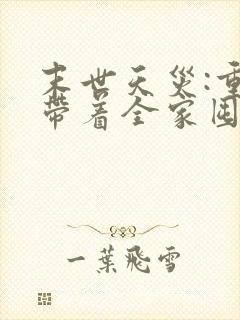 末世天災:重
帶着全家囤
一葉飛雪